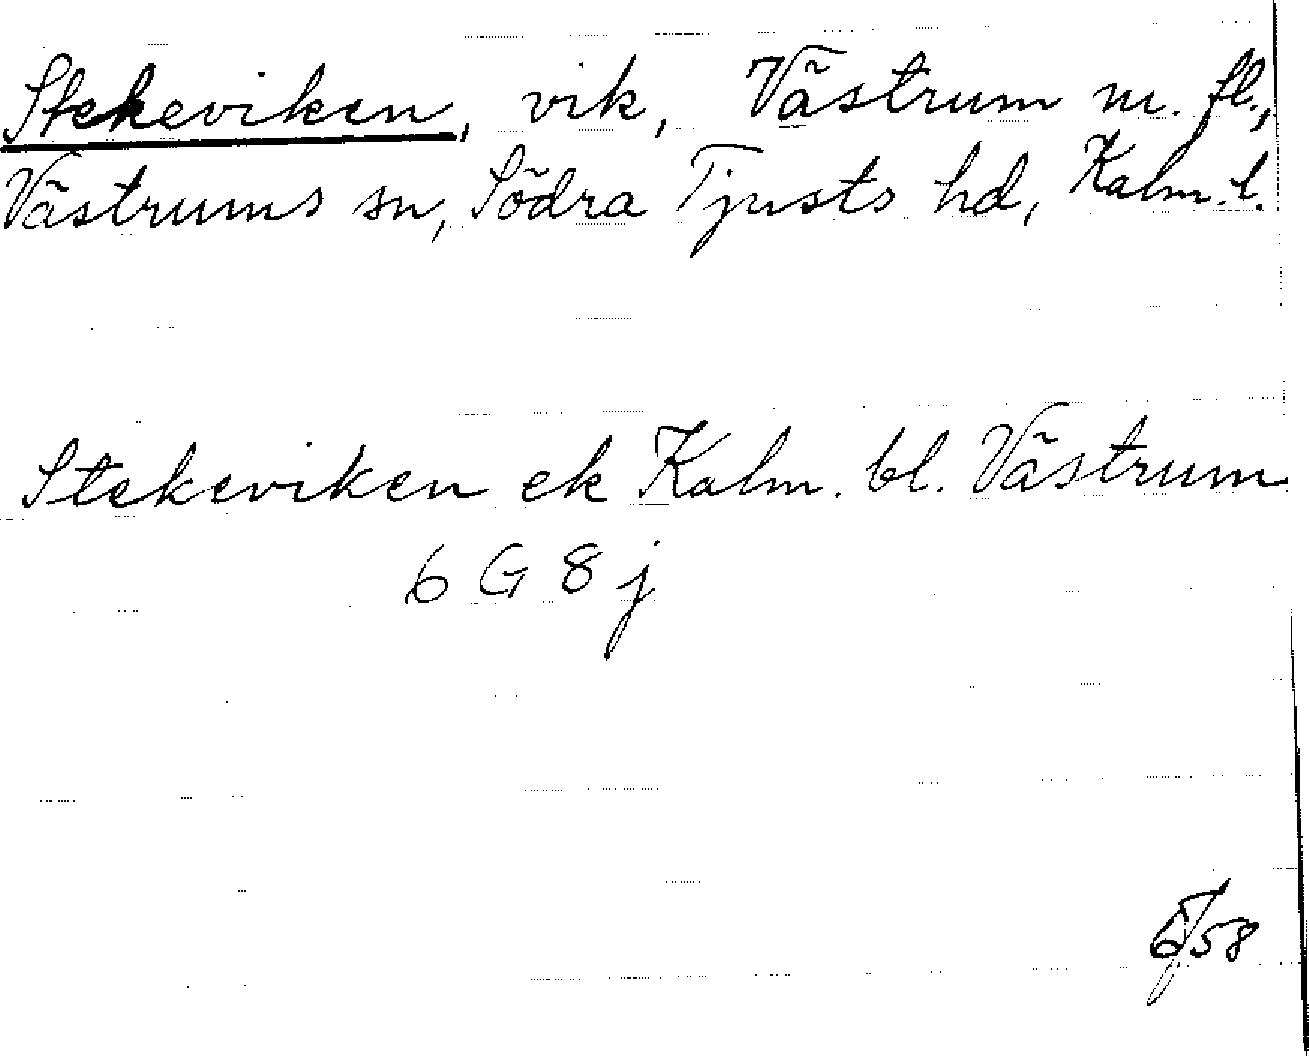 Stekeviken, vik, Västrum m. fl.,
Västrums sn, Södra Tjusts hd, Kalm. l.
Stekeviken ek Kalm. bl. Västrum
6 G 8 j